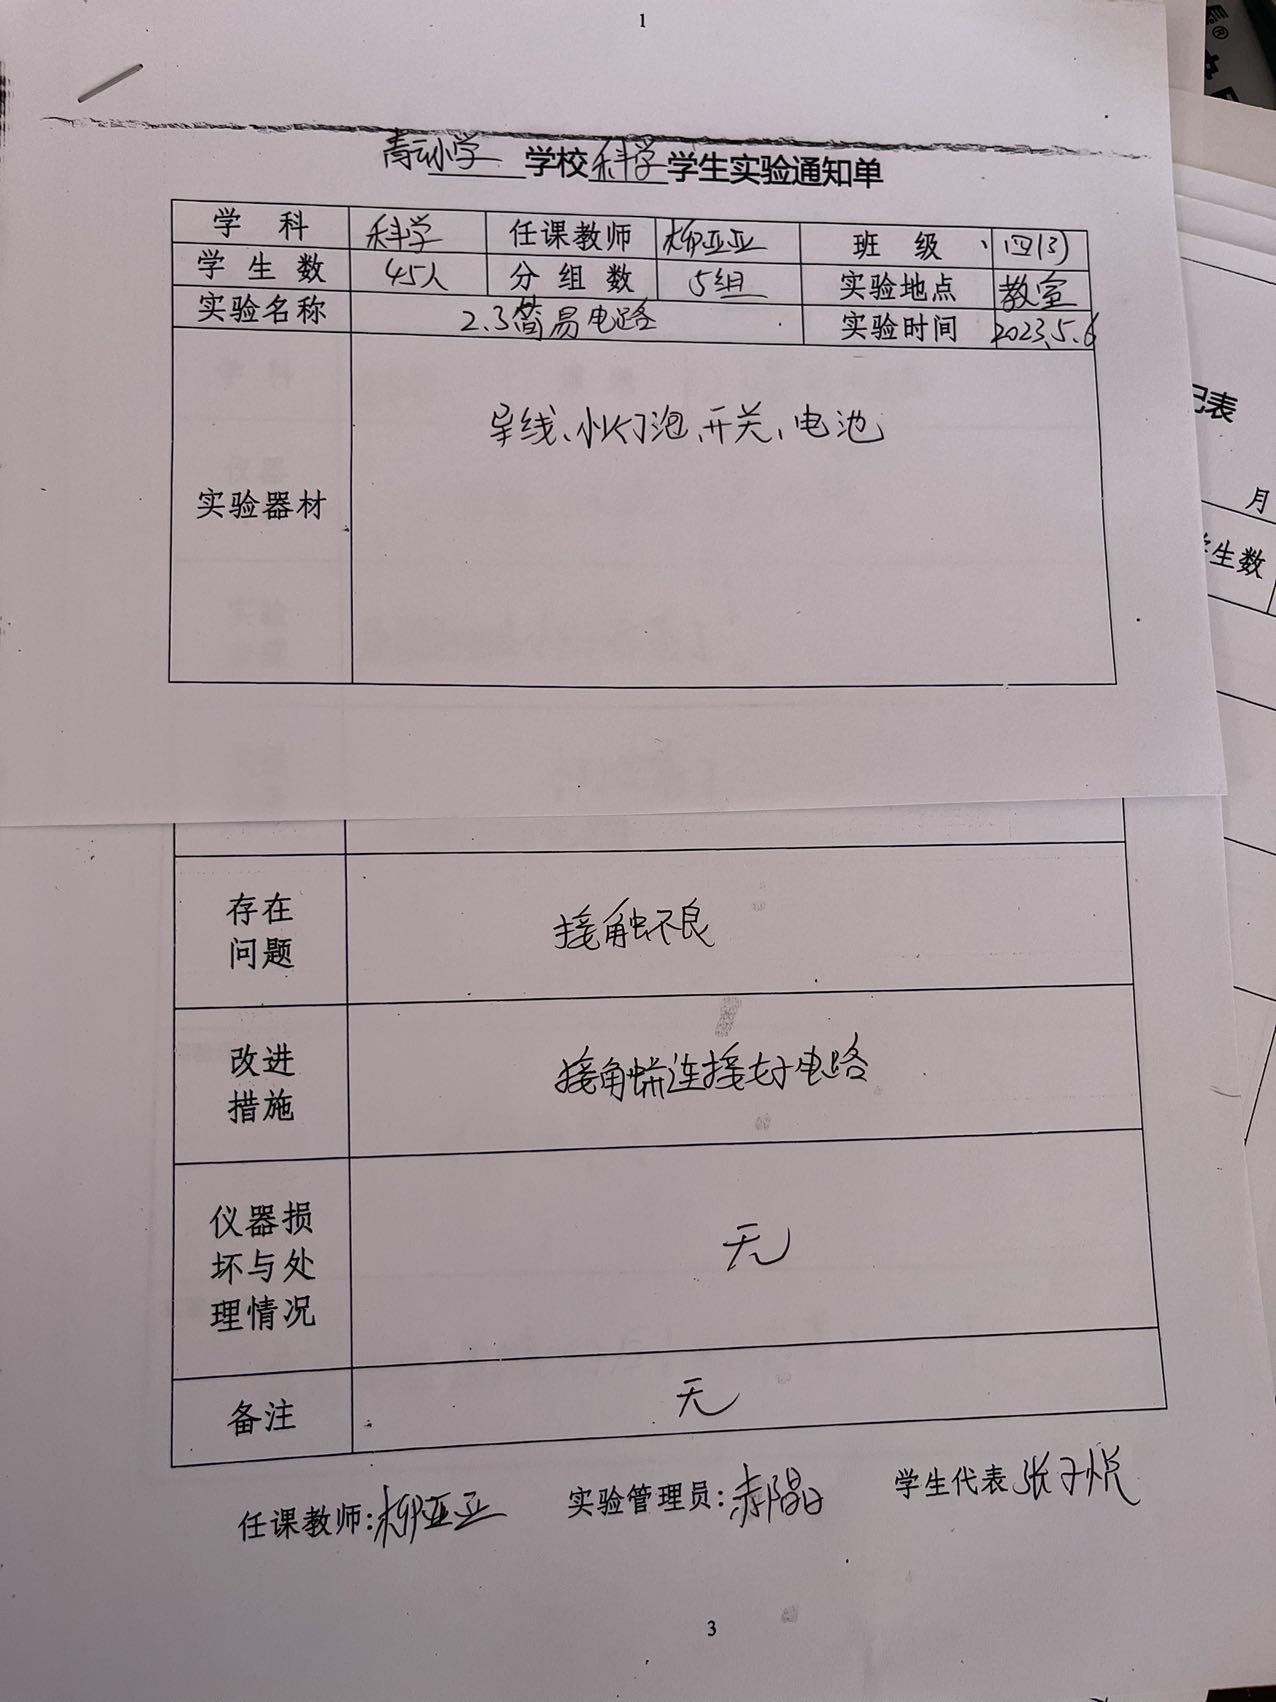 1
青云小学 学校 科学 学生实验通知单
学 科 科学 任课教师 柳亚亚 班 级 四(3)
学 生 数 45人 分 组 数 5组 实验地点 教室
实验名称 2.3简易电路 实验时间 2023.5.6
实验器材 导线、小灯泡、开关、电池
记表
月
学生数
存在
问题
接触不良
改进
措施
接触并连接好电路
仪器损
坏与处
理情况
无
备注 无
任课教师:柳亚亚 实验管理员:郝晶 学生代表 张子悦
3